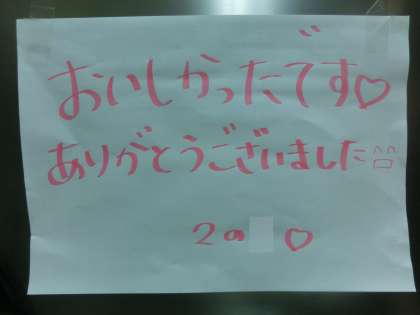 おいしかったです♡
ありがとうございました
2の ♡